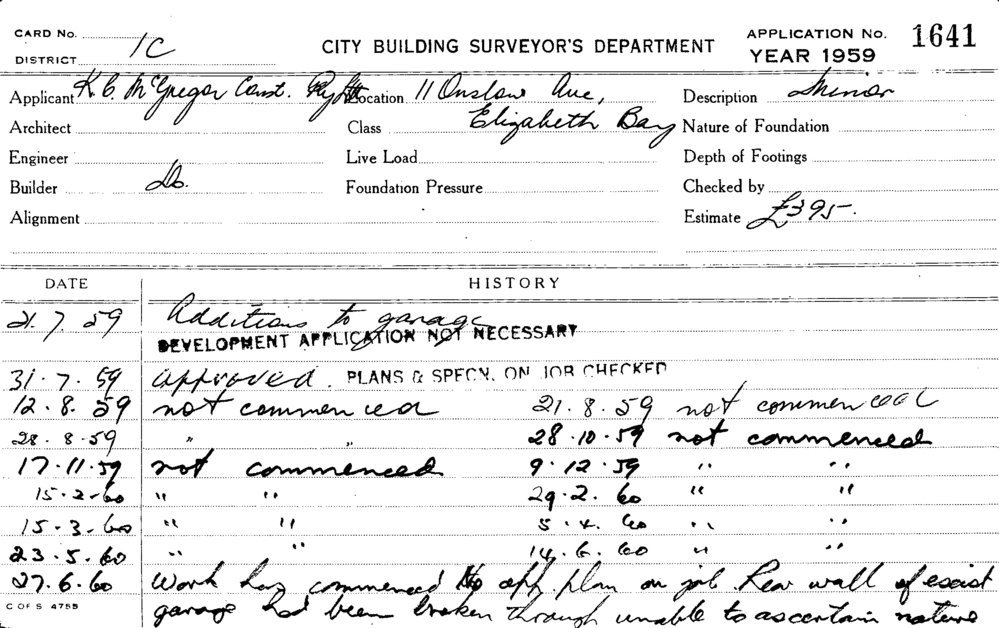 CARD No.
DISTRICT 1C
CITY BUILDING SURVEYOR'S DEPARTMENT
APPLICATION No. 1641
YEAR 1959
Applicant K.C. McGregor Const. Pty Ltd
Location 11 Onslow Ave,
Description Minor
Architect
Class Elizabeth Bay
Nature of Foundation
Engineer
Live Load
Depth of Footings
Builder Do.
Foundation Pressure
Checked by
Alignment
Estimate £395-
DATE HISTORY
21.7.59 Additions to garage
DEVELOPMENT APPLICATION NOT NECESSARY
31.7.59 approved. PLANS & SPECN. ON JOB CHECKED
12.8.59 not commenced 21.8.59 not commenced
28.8.59 " " 28.10.59 not commenced
17.11.59 not commenced 9.12.59 " "
15.2.60 " " 29.2.60 " "
15.3.60 " " 5.4.60 " "
23.5.60 " " 14.6.60 " "
27.6.60 Work has commenced No app plan on job Rear wall of exist
C OF S 4755 garage had been broken through unable to ascertain nature